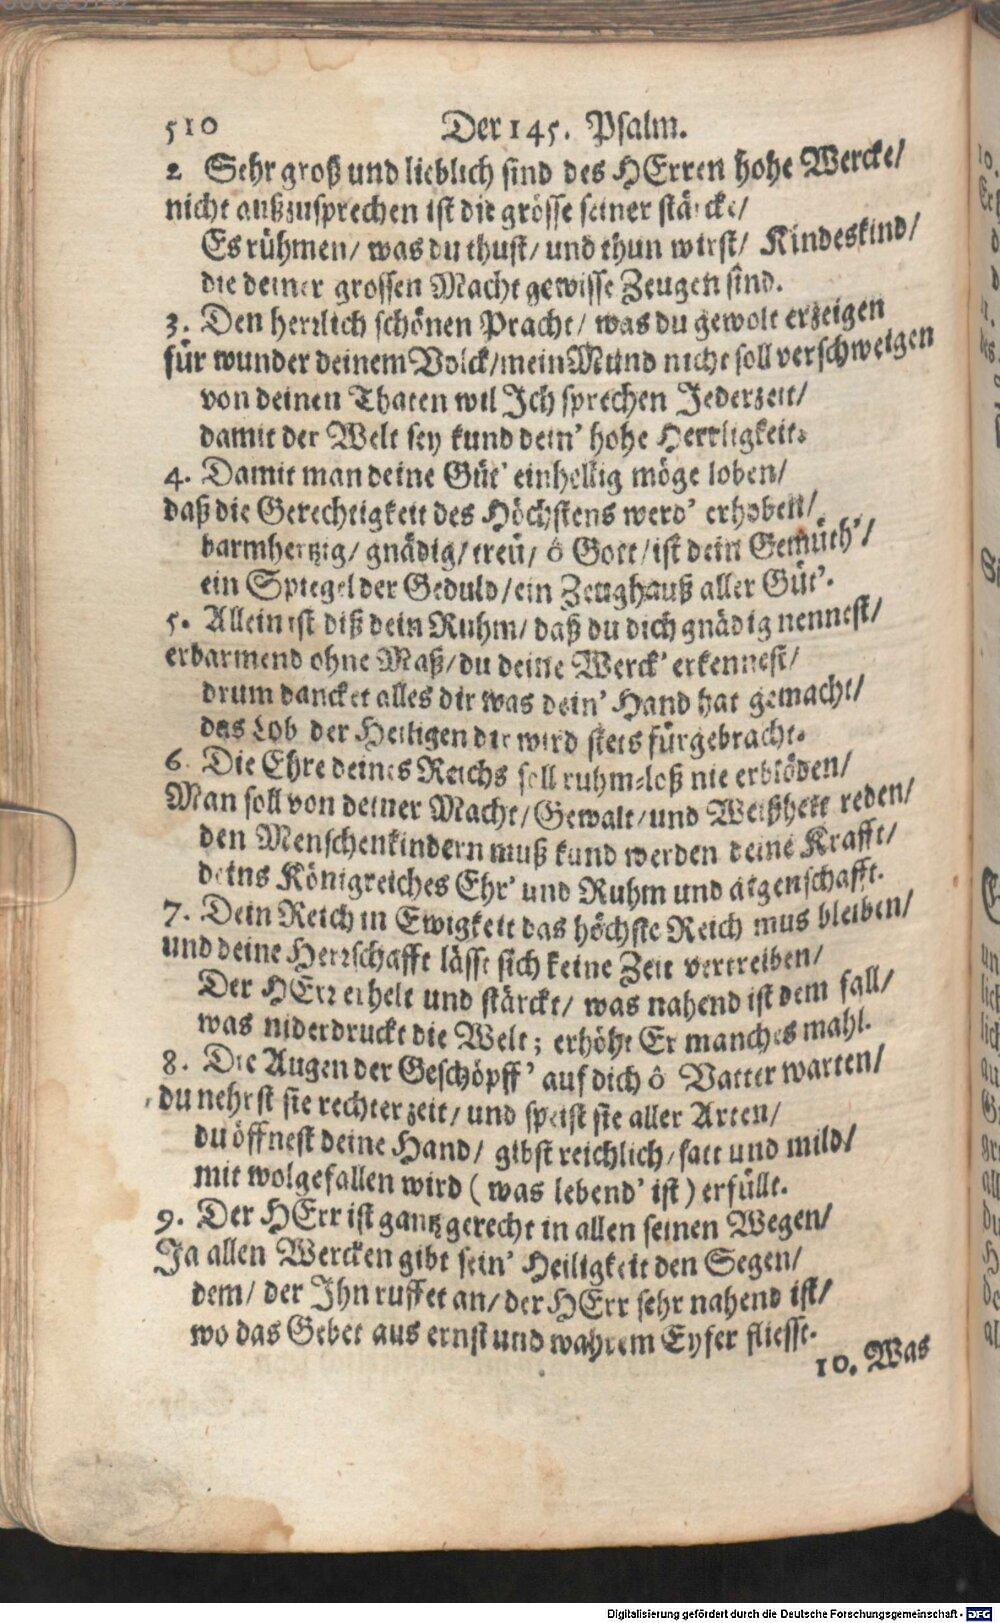 510 Der 145. Psalm.
2 Sehr groß und lieblich sind des HErren hohe Wercke/
nicht außzusprechen ist die grösse seiner stärcke/
Es rühmen/ was du thust/ und thun wirst/ Kindeskind/
die deiner grossen Macht gewisse Zeugen sind.
3. Den herrlich schönen Pracht/ was du gewolt erzeigen
für wunder deinem Volck/ mein Mund nicht soll verschweigen
von deinen Thaten wil Ich sprechen Jederzeit/
damit der Welt sey kund dein' hohe Herrligkeit.
4. Damit man deine Güt' einhellig möge loben/
daß die Gerechtigkeit des Höchstens werd' erhoben/
barmhertzig/ gnädig/ treü/ ô Gott/ ist dein Gemüth'/
ein Spiegel der Geduld/ ein Zeughauß aller Güt'.
5. Allein ist diß dein Ruhm/ daß du dich gnädig nennest/
erbarmend ohne Maß/ du deine Werck' erkennest/
drum dancket alles dir was dein' Hand hat gemacht/
das Lob der Heiligen dir wird stets fürgebracht.
6. Die Ehre deines Reichs soll ruhm-loß nie erblöden/
Man soll von deiner Macht/ Gewalt/ und Weißheit reden/
den Menschenkindern muß kund werden deine Krafft/
deins Königreiches Ehr' und Ruhm und aigenschafft.
7. Dein Reich in Ewigkeit das höchste Reich mus bleiben/
und deine Herrschafft lässt sich keine Zeit vertreiben/
Der HErr erhelt und stärckt/ was nahend ist dem fall/
was niderdruckt die Welt; erhöht Er manches mahl.
8. Die Augen der Geschöpff' auf dich ô Vatter warten/
du nehrst sie rechter zeit/ und speist sie aller Arten/
du öffnest deine Hand/ gibst reichlich/ satt und mild/
mit wolgefallen wird (was lebend' ist) erfüllt.
9. Der HErr ist gantz gerecht in allen seinen Wegen/
Ja allen Wercken gibt sein' Heiligkeit den Segen/
dem/ der Ihn ruffet an/ der HErr sehr nahend ist/
wo das Gebet aus ernst und wahrem Eyfer fliesst.
10. Was
Digitalisierung gefördert durch die Deutsche Forschungsgemeinschaft - DFG